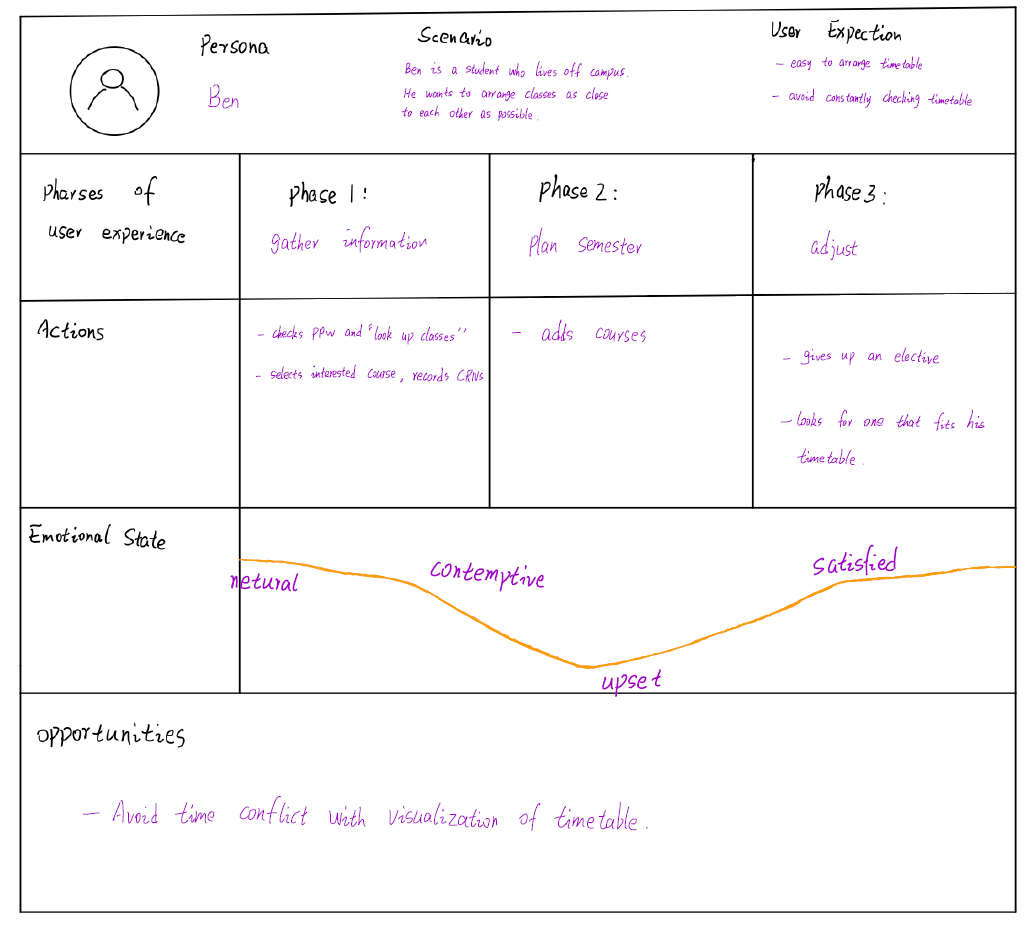 Persona
Ben
Scenario
Ben is a student who lives off campus.
He wants to arrange classes as close
to each other as possible.
User Expection
- easy to arrange timetable
- avoid constantly checking timetable
Pharses of
user experience
Phase 1:
gather information
Phase 2:
Plan semester
Phase 3:
adjust
Actions
- checks PPW and "look up classes"
- selects interested course, records CRNs
- adds courses
- gives up an elective
- looks for one that fits his
timetable.
Emotional State
netural
contemptive
upset
satisfied
opportunities
- Avoid time conflict with visualization of timetable.